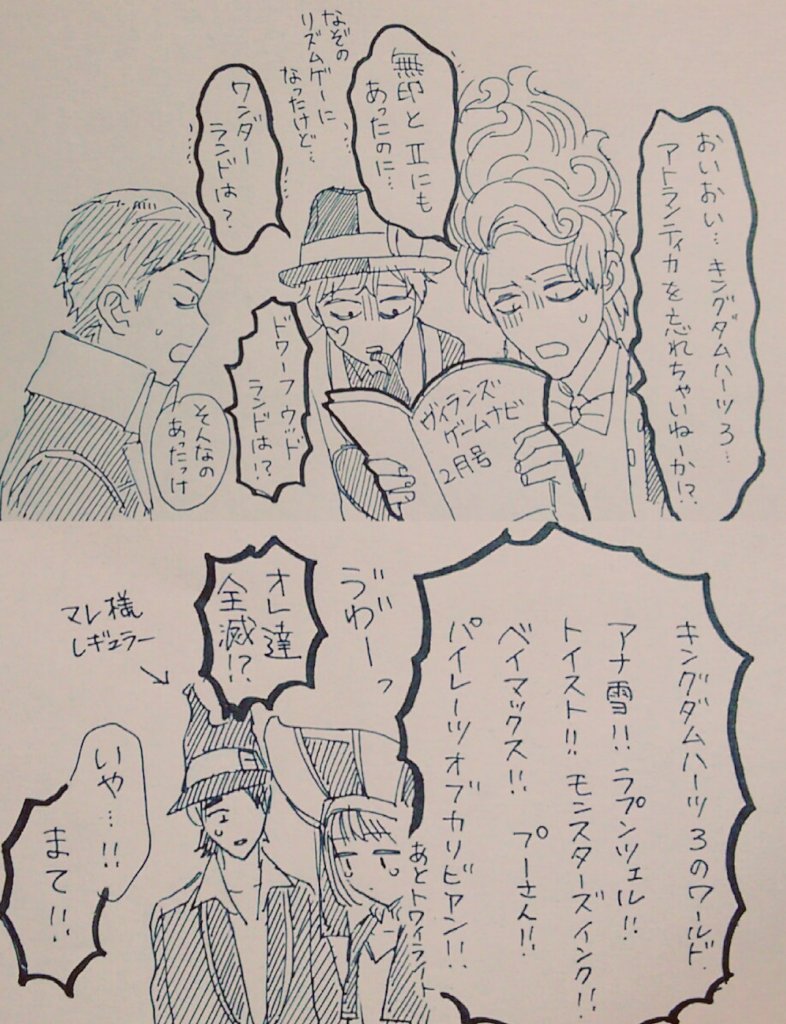 おいおい…キングダムハーツ3…
アトランティカを忘れちゃいねーか!?
無印とⅡにも
あったのに…
なぞの
リズムゲーに
なったけど…
ワンダー
ランドは?
ドワーフウッド
ランドは!?
そんなの
あったっけ
ヴィランズ
ゲームナビ
2月号
キングダムハーツ3のワールド
アナ雪!! ラプンツェル!!
トイスト!! モンスターズインク!!
ベイマックス!! プーさん!!
パイレーツオブカリビアン!!
あとトワイライト
ゔわーっ
オレ達
全滅!?
マレ様
レギュラー
いや…!!
まて!!